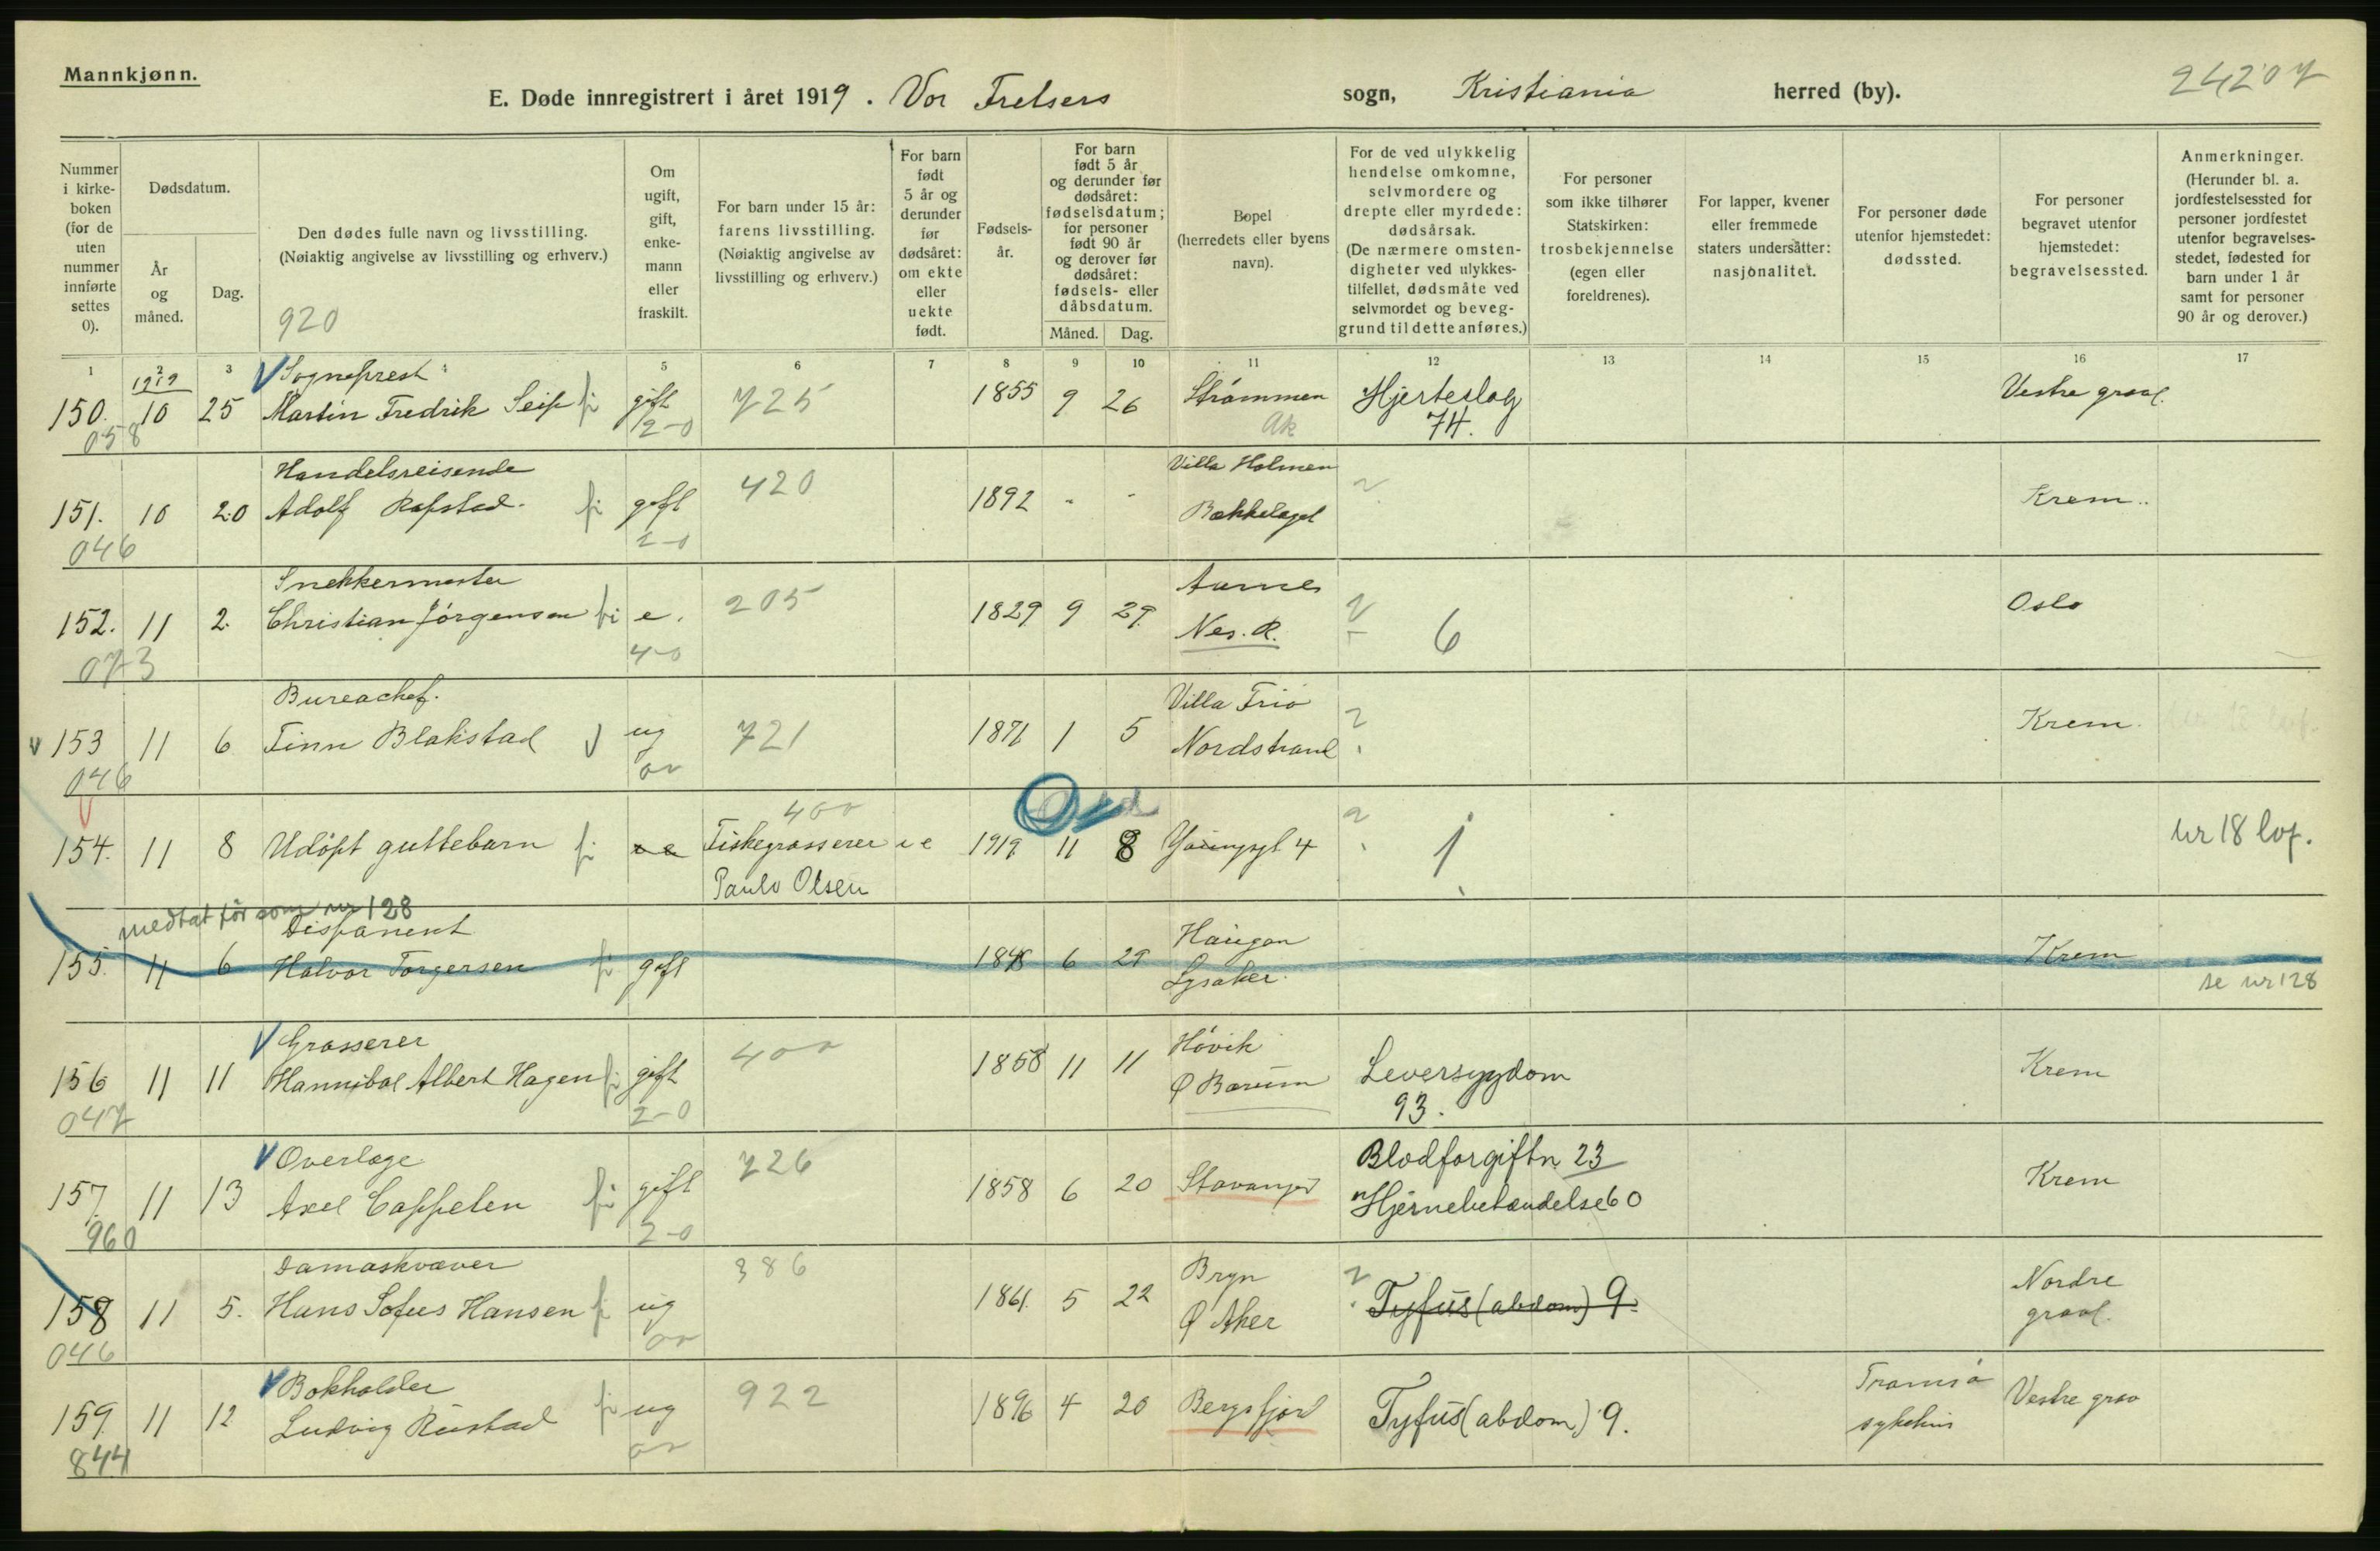 Mannkjønn.
E. Døde innregistrert i året 1919. Vor Frelsers sogn, Kristiania herred (by).
24207
Nummer i kirkeboken (for de uten nummer innførte settes 0).
Dødsdatum.
År og måned.
Dag.
Den dødes fulle navn og livsstilling.
(Nøiaktig angivelse av livsstilling og erhverv.)
920
Om ugift, gift, enkemann eller fraskilt.
For barn under 15 år: farens livsstilling.
(Nøiaktig angivelse av livsstilling og erhverv.)
For barn født 5 år og derunder før dødsåret: om ekte eller uekte født.
Fødselsår.
For barn født 5 år og derunder før dødsåret: fødselsdatum; for personer født 90 år og derover før dødsåret: fødsels- eller dåbsdatum.
Måned. Dag.
Bopel (herredets eller byens navn).
For de ved ulykkelig hendelse omkomne, selvmordere og drepte eller myrdede: dødsårsak.
(De nærmere omstendigheter ved ulykkestilfellet, dødsmåte ved selvmordet og beveggrund til dette anføres.)
For personer som ikke tilhører Statskirken: trosbekjennelse (egen eller foreldrenes).
For lapper, kvener eller fremmede staters undersåtter: nasjonalitet.
For personer døde utenfor hjemstedet: dødssted.
For personer begravet utenfor hjemstedet: begravelsessted.
Anmerkninger.
(Herunder bl. a. jordfestelsessted for personer jordfestet utenfor begravelsesstedet, fødested for barn under 1 år samt for personer 90 år og derover.)
1 2 3 4 5 6 7 8 9 10 11 12 13 14 15 16 17
1919
Sogneprest
150. 10 25 Martin Fredrik Seip fi gift 725 1855 9 26 Strømmen Hjerteslag Vestre gravl.
058 2-0 Ak 74.
Handelsreisende Villa Holmen
151. 10 20 Adolf Rafstad. fi gift 420 1892 - - Bækkelaget ? Krem.
046 2-0
Snekkermester Aarnes
152. 11 2. Christian Jörgensen fi e. 205 1829 9 29. Nes. R. ? 6 Oslo
073 4-0
Bureachef. Villa Frio
153 11 6 Finn Blakstad ug 721 1871 1 5 Nordstrand ? Krem.
046
400
154. 11 8 Udöpt guttebarn fi Fiskegrosserer 1919 11 8 4 ? 1 nr 18 lof.
Paulo Olsen
medtat för som nr 128
Disponent Haugan
155. 11 6 Halvor Torgersen fi gift 6 29 Lysaker Krem
se nr 128
Grosserer Hövik
156 11 11 Hannibal Albert Hagen fi gift 400 1858 11 11 Ø Bærum Leversygdom Krem
047 2-0 93.
Overlæge Blodforgiftn 23
157. 11 13 Axel Cappelen fi gift 726 1858 6 20 Stavanger Hjernebetændelse 60 Krem
960 2-0
Damaskvæver 386 Bryn Nordre
158 11 5. Hans Sofus Hansen fi ug 1861. 5 22 Ø Aker ? Tyfus (abdom) 9. gravl.
046
Bokholder Tromsø
159. 11 12 Ludvig Rustad fi ug 922 1896 4 20 Bergsfjord Tyfus (abdom) 9. sykehus Vestre grav
844